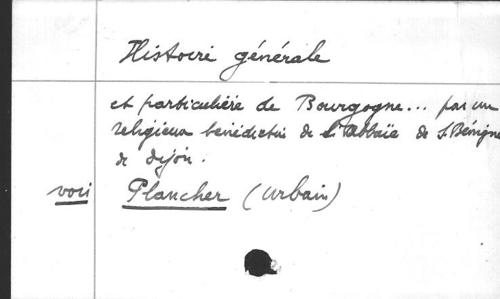 Histoire générale
et particulière de Bourgogne... par un
religieux bénédictin de l'Abbaïe de St Bénigne
de Dijon.
voir Plancher (Urbain)